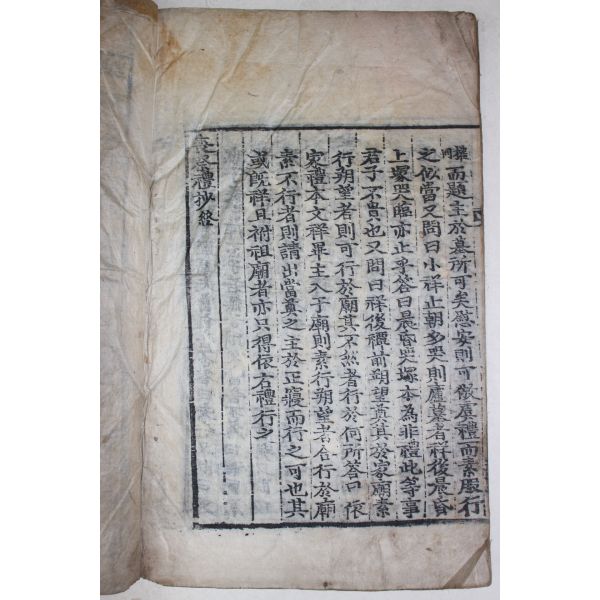 而題主於墓所可矣慰安則可倣虞禮而素服行
之似當又問曰小祥止朝夕哭則廬墓者祥後晨昏
上塚哭臨亦止乎答曰晨昏哭塚本為非禮此等事
君子不貴也又問曰祥後禫前朔望奠其於家廟素
行朔望者則可行於廟其不然者行於何所答曰依
家禮本文祥畢主入于廟則素行朔望者合行於廟
素不行者則請出當奠之主於正寢而行之可也其
或旣祥且祔祖廟者亦只得依右禮行之
禮抄終